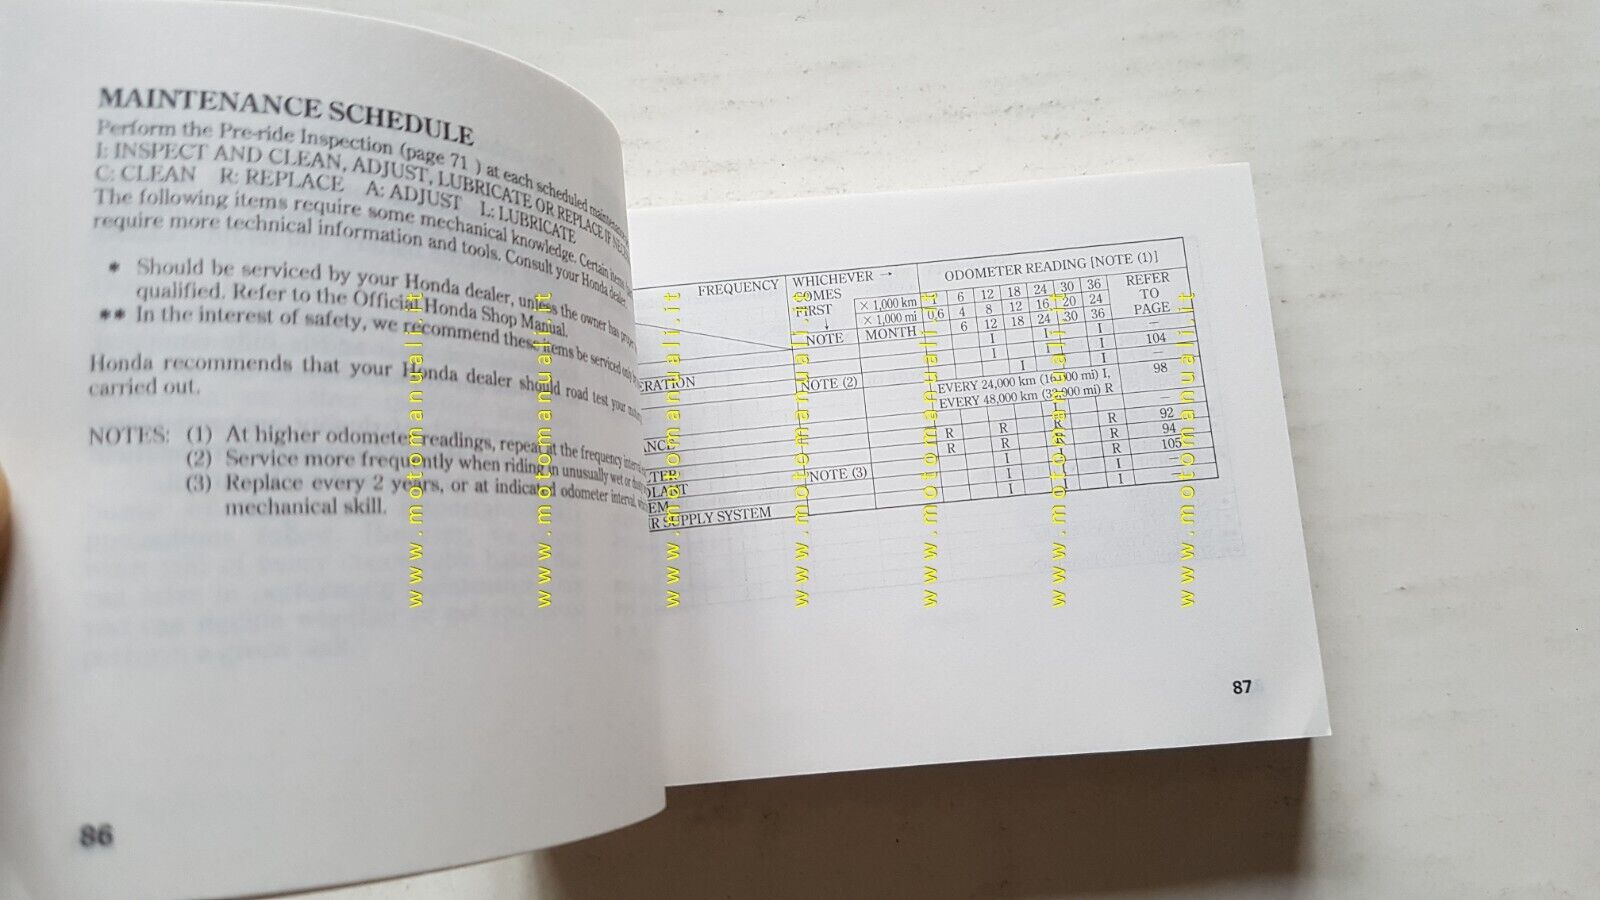 MAINTENANCE SCHEDULE
Perform the Pre-ride Inspection (page 71 ) at each scheduled
I: INSPECT AND CLEAN, ADJUST, LUBRICATE OR REPLACE IF
C: CLEAN R: REPLACE A: ADJUST L: LUBRICATE
The following items require some mechanical knowledge. Certain items
require more technical information and tools. Consult your Honda dealer.
* Should be serviced by your Honda dealer, unless the owner has
qualified. Refer to the Official Honda Shop Manual.
** In the interest of safety, we recommend these items be serviced only
Honda recommends that your Honda dealer should road test your
carried out.
NOTES: (1) At higher odometer readings, repeat at the frequency
(2) Service more frequently when riding in unusually wet or
(3) Replace every 2 years, or at indicated odometer interval,
mechanical skill.
86
FREQUENCY WHICHEVER → ODOMETER READING [NOTE (1)]
COMES × 1,000 km 1 6 12 18 24 30 36 REFER
FIRST × 1,000 mi 0.6 4 8 12 16 20 24 TO
↓ NOTE MONTH 6 12 18 24 30 36 PAGE
I I I —
ERATION I I I 104
NOTE (2) I I —
EVERY 24,000 km (16,000 mi) I, 98
EVERY 48,000 km (32,000 mi) R
—
ANCE R R R R 92
LTER R R R R 94
OLANT NOTE (3) I I R 105
EM I I I —
R SUPPLY SYSTEM I I I —
87
www.motomanuali.it
www.motomanuali.it
www.motomanuali.it
www.motomanuali.it
www.motomanuali.it
www.motomanuali.it
www.motomanuali.it